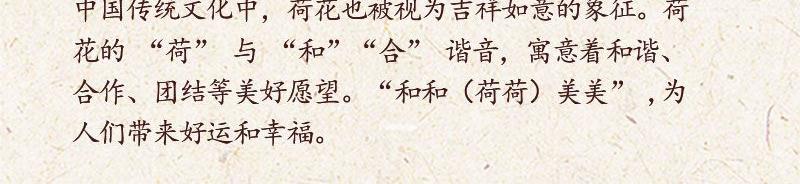 中国传统文化中，荷花也被视为吉祥如意的象征。荷
花的 “荷” 与 “和”“合” 谐音，寓意着和谐、
合作、团结等美好愿望。“和和（荷荷）美美” ，为
人们带来好运和幸福。